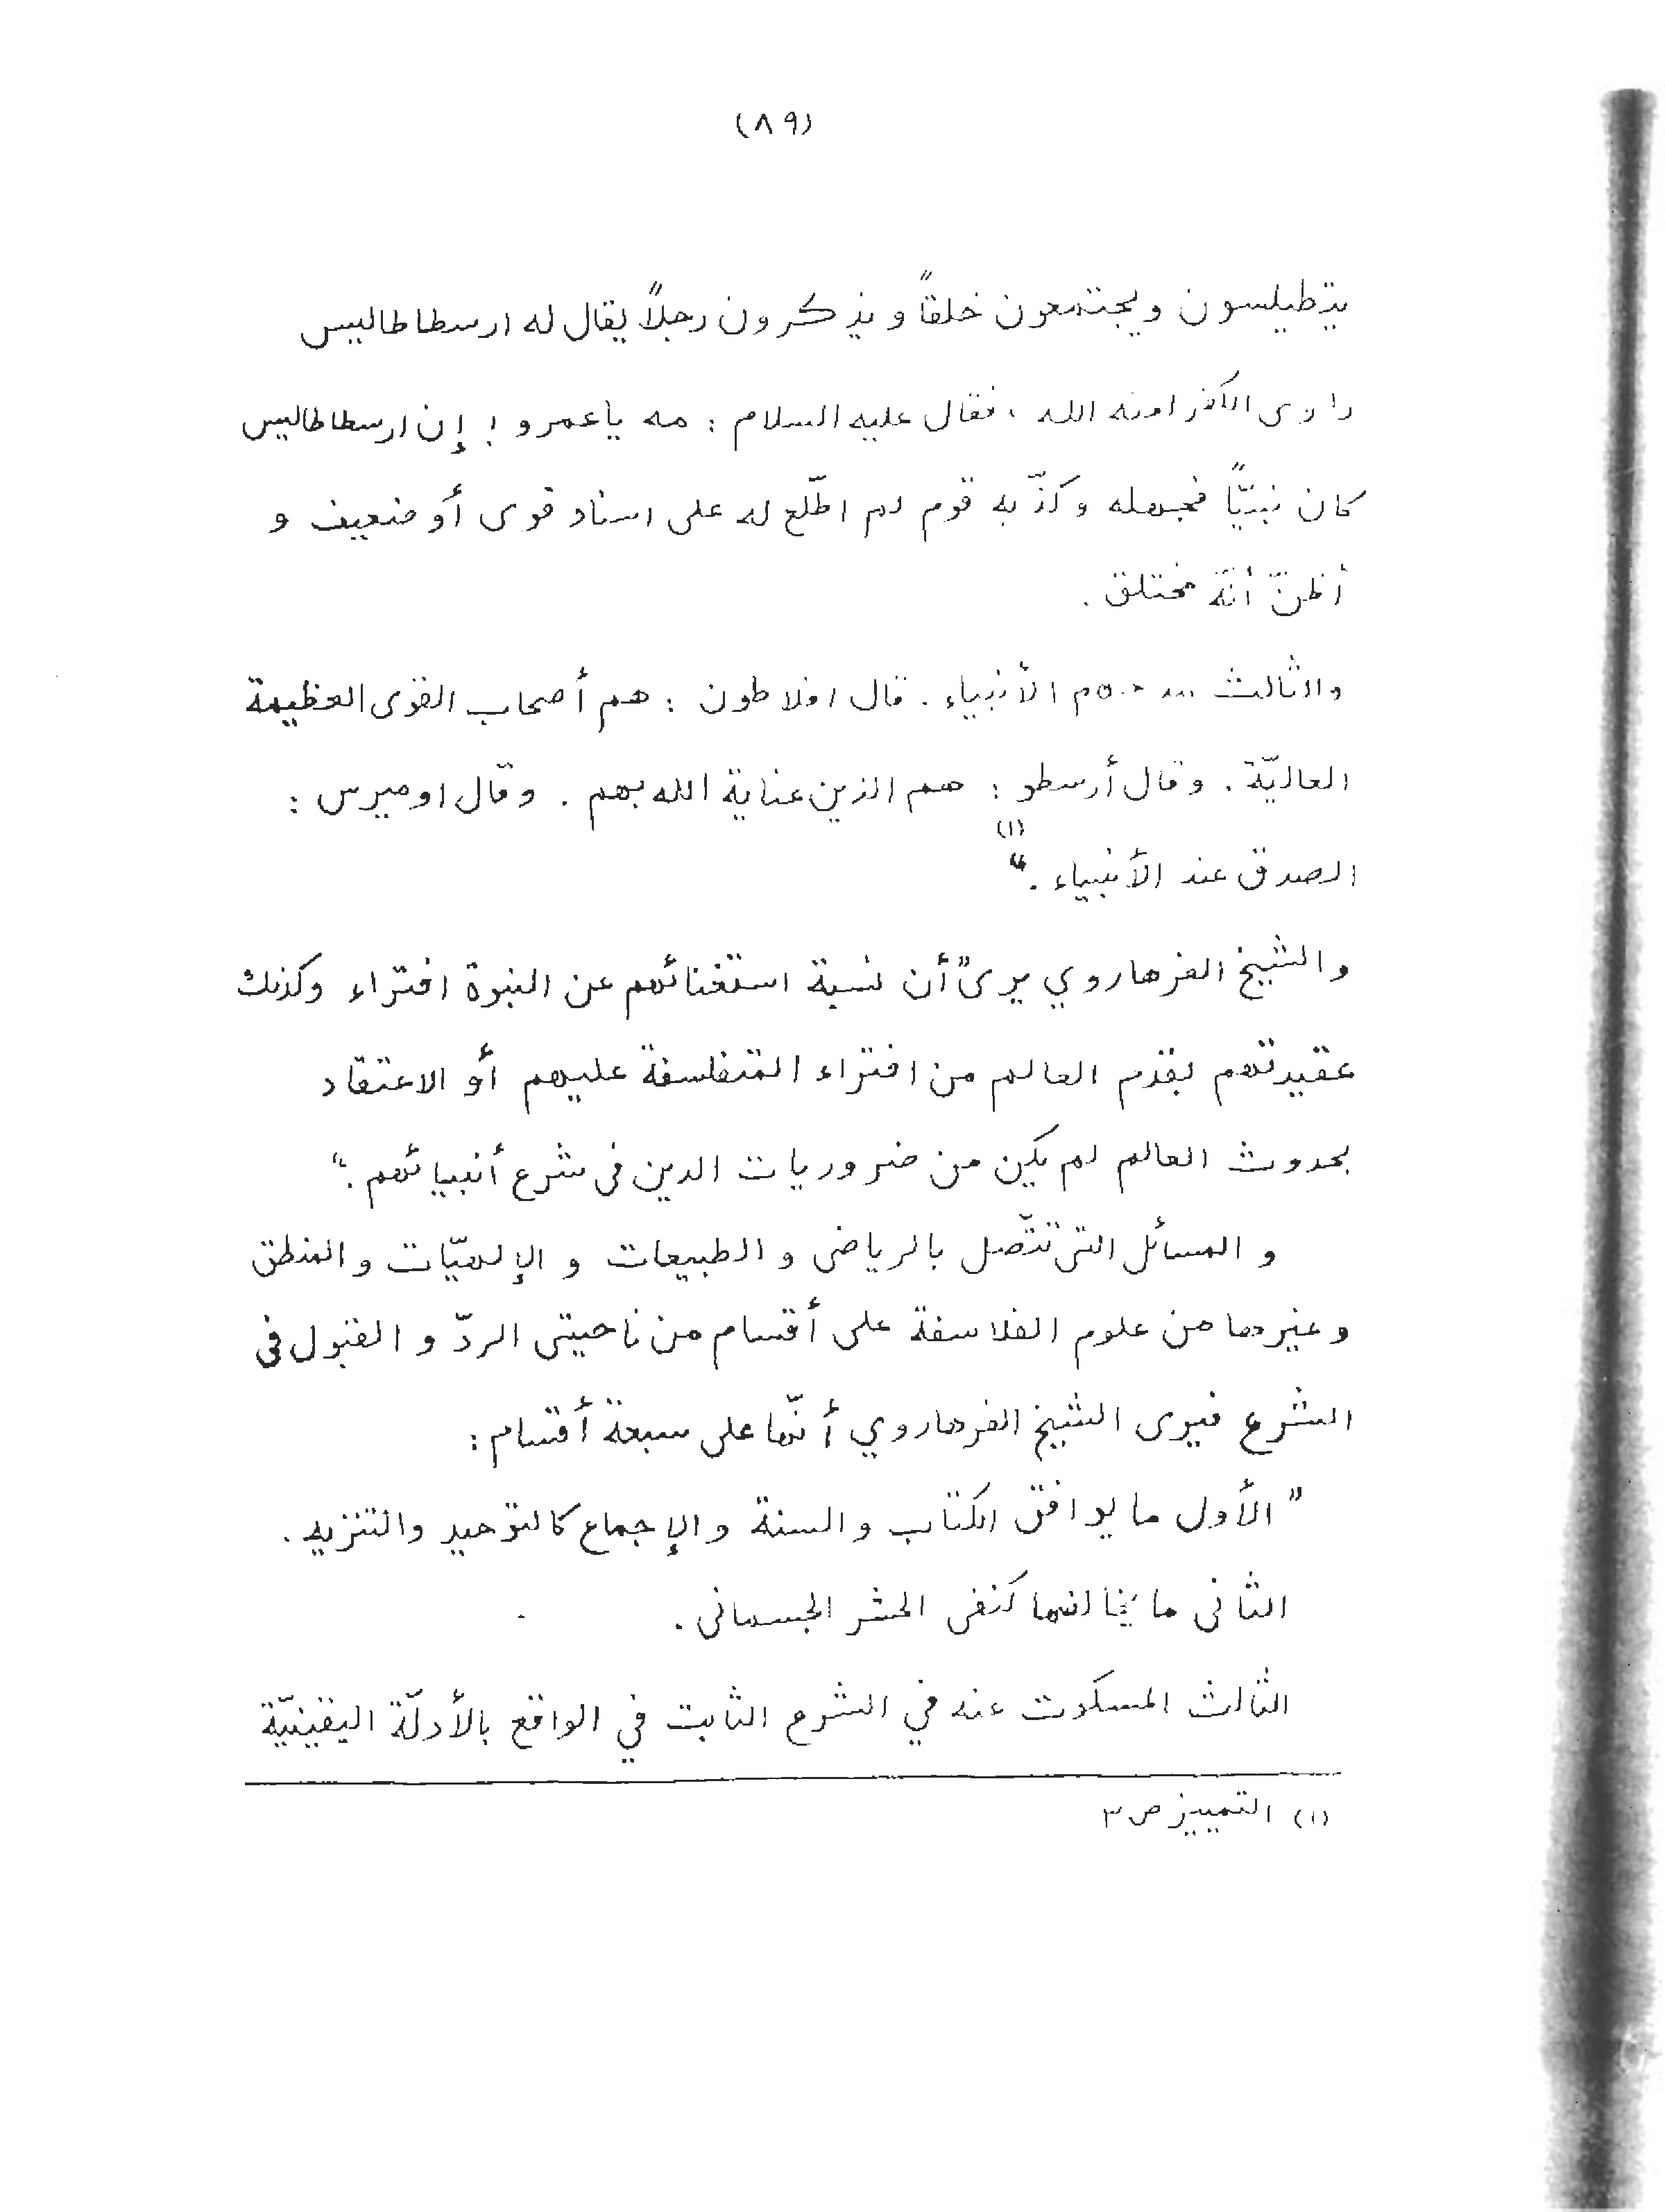 (٨٩)
يتطيلسون ويجتمعون خلقاً و يذكرون رجلاً يقال له ارسطاطاليس
الله ، فقال عليه السلام : مه ياعمرو ! إن ارسطاطاليس
كان نبيّاً فجهله وكذّ به قوم لم اطّلع له على اسناد قوى أو ضعيف و
أظنّ أنّه مختلق .
والثالث الأنبياء . قال افلاطون : هم أصحاب القوى العظيمة
العاليّة . وقال أرسطو : هم الذين عناية الله بهم . وقال اوميرس :
الصدق عند الأنبياء .“ (١)
والشيخ الفرهاروي يرى ”أن نسبة استغنائهم عن النبوة افتراء وكذلك
عقيدتهم بقدم العالم من افتراء المتفلسفة عليهم أو الاعتقاد
بحدوث العالم لم يكن من ضروريات الدين فى شرع أنبيائهم .“
و المسائل التى تتّصل بالرياضى و الطبيعات و الإلهيّات و المنطق
و غيرها من علوم الفلاسفة على أقسام من ناحيتى الردّ و القبول فى
الشرع فيرى الشيخ الفرهاروي أنّها على سبعة أقسام :
” الأول ما يوافق الكتاب و السنة و الإجماع كالتوحيد والتنزيه .
الثانى ما يخالفها كنفى الحشر الجسمانى .
الثالث المسكوت عنه في الشرع الثابت في الواقع بالأدلّة اليقينيّة
(١) التمييز ص ٣